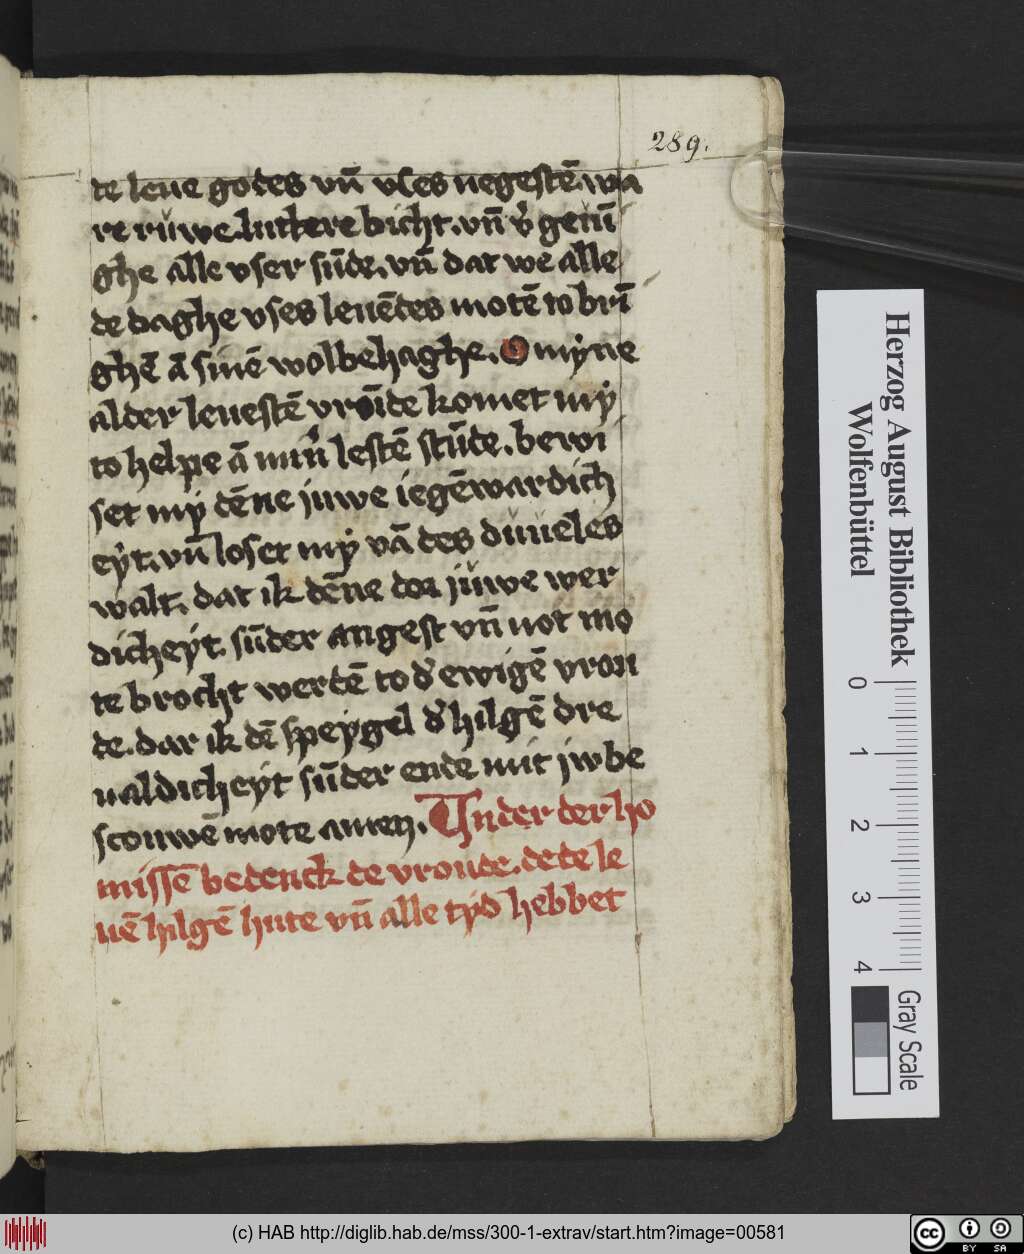 289.
te leue godes vn̄ vses negestē. wa
re růwe. luttere bicht. vn̄ v̉ genū
ghe alle vser sūde. vn̄ dat we alle
de daghe vses leuēdes motē to brī
ghē ā sinē wolbehaghe. O myne
alder leuestē vrōīde komet my
to helpe ā min̉ lestē stūde. bewi
set my dēne juwe iegēwardich
eyt. vn̄ loset my vā des důueles
walt. dat ik dēne dor jůwe wer
dicheyt. sūder angest vn̄ not mo
te brocht werdē to d̉ ewigē vrou
de. dar ik dē speygel d̉ hilgē dre
ualdicheyt sūder ende mit jw be
scouwē mote amen. Under der ho
missē bedenck de vroude. de de le
uē hilgē hute vn̄ alle tyd hebbet
Herzog August Bibliothek
Wolfenbüttel
0 1 2 3 4
Gray Scale
(c) HAB http://diglib.hab.de/mss/300-1-extrav/start.htm?image=00581
cc BY SA